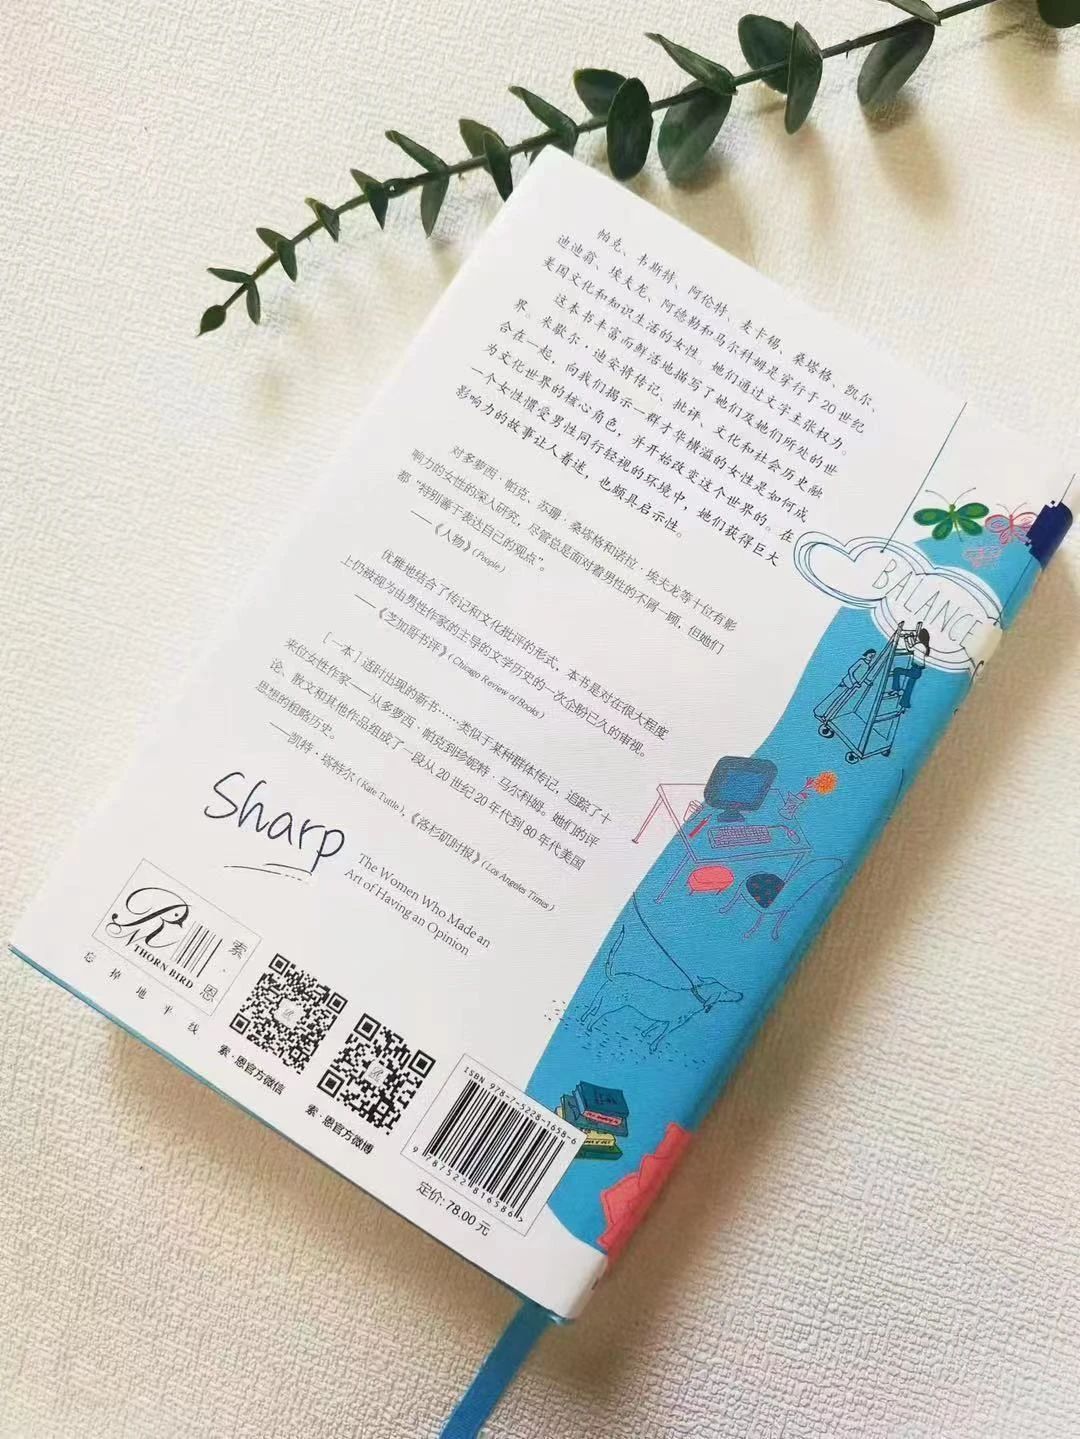 帕克、韦斯特、阿伦特、麦卡锡、桑塔格、凯尔、
迪迪翁、埃夫龙、阿德勒和马尔科姆是穿行于20世纪
美国文化和知识生活的女性。她们通过文字主张权力。
这本书丰富而鲜活地描写了她们及她们所处的世
界。米歇尔·迪安将传记、批评、文化和社会历史融
合在一起，向我们揭示一群才华横溢的女性是如何成
为文化世界的核心角色，并开始改变这个世界的。在
一个女性惯受男性同行轻视的环境中，她们获得巨大
影响力的故事让人着迷，也颇具启示性。
对多萝西·帕克、苏珊·桑塔格和诺拉·埃夫龙等十位有影
响力的女性的深入研究，尽管总是面对着男性的不屑一顾，但她们
都“特别善于表达自己的观点”。
——《人物》(People)
优雅地结合了传记和文化批评的形式，本书是对在很大程度
上仍被视为由男性作家的主导的文学历史的一次企盼已久的审视。
——《芝加哥书评》(Chicago Review of Books)
[一本]适时出现的新书……类似于某种群体传记，追踪了十
来位女性作家——从多萝西·帕克到珍妮特·马尔科姆。她们的评
论、散文和其他作品组成了一段从20世纪20年代到80年代美国
思想的粗略历史。
——凯特·塔特尔(Kate Tuttle)，《洛杉矶时报》(Los Angeles Times)
Sharp
The Women Who Made an
Art of Having an Opinion
BALANCE
THORN BIRD
索·恩
忘掉地平线
索·恩官方微信
索·恩官方微博
ISBN 978-7-5228-1658-6
9 787522 816586>
定价: 78.00 元